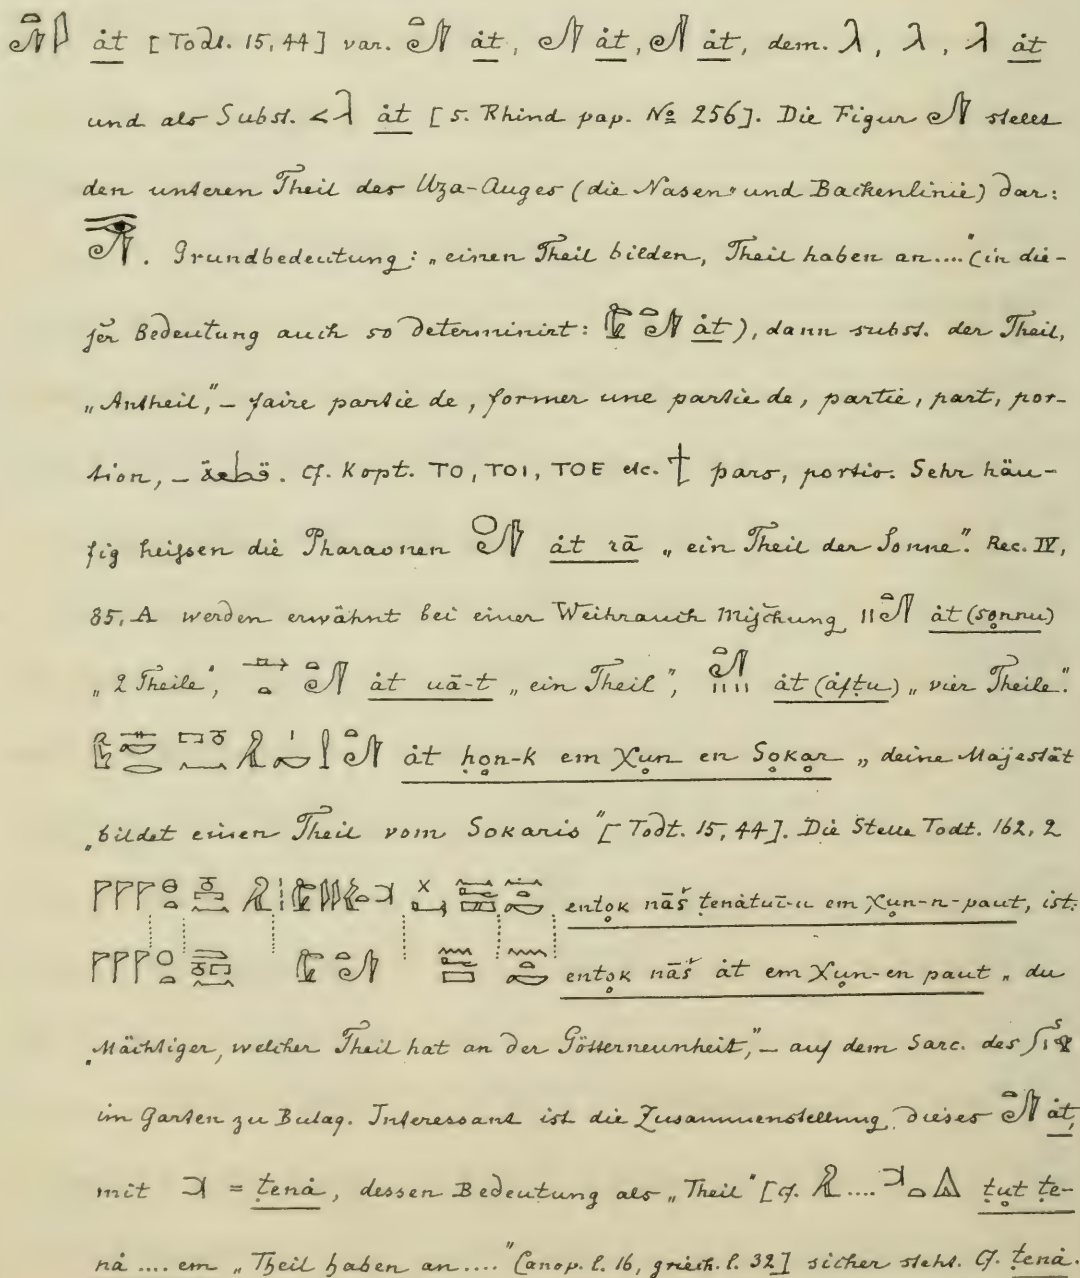 ȧt [Todt. 15, 44] var. ȧt, ȧt, ȧt, dem. ȧt
und als Subst. ȧt [s. Rhind pap. № 256]. Die Figur stellt
den unteren Theil des Uza-Auges (die Nasen- und Backenlinie) dar:
. Grundbedeutung: „einen Theil bilden, Theil haben an...." (in die-
ser Bedeutung auch so determinirt: ȧt), dann subst. der Theil,
„Antheil," – faire partie de, former une partie de, partie, part, por-
tion, – قطعة. Cf. Kopt. ⲦⲞ, ⲦⲞⲒ, ⲦⲞⲈ etc. † pars, portio. Sehr häu-
fig heissen die Pharaonen ȧt rā „ein Theil der Sonne". Rec. IV,
85, A werden erwähnt bei einer Weihrauch Mischung ȧt (sọnnu)
„2 Theile", ȧt uā-t „ein Theil", ȧt (ȧfṭu) „vier Theile".
ȧt ḥọn-k em χụn en Sọkạr „deine Majestät
„bildet einen Theil vom Sokaris" [Todt. 15, 44]. Die Stelle Todt. 162, 2
entọk nāš ṭenȧtuī-u em χụn-n-paut, ist:
entọk nāš ȧt em χụn-en paut „du
„Mächtiger, welcher Theil hat an der Götterneunheit," – auf dem Sarc. des
im Garten zu Bulaq. Interessant ist die Zusammenstellung dieses ȧt,
mit = ṭenȧ, dessen Bedeutung als „Theil" [cf. .... ṭụt ṭe-
nȧ .... em „Theil haben an...." (Canop. l. 16, griech. l. 32] sicher steht. Cf. ṭenȧ.